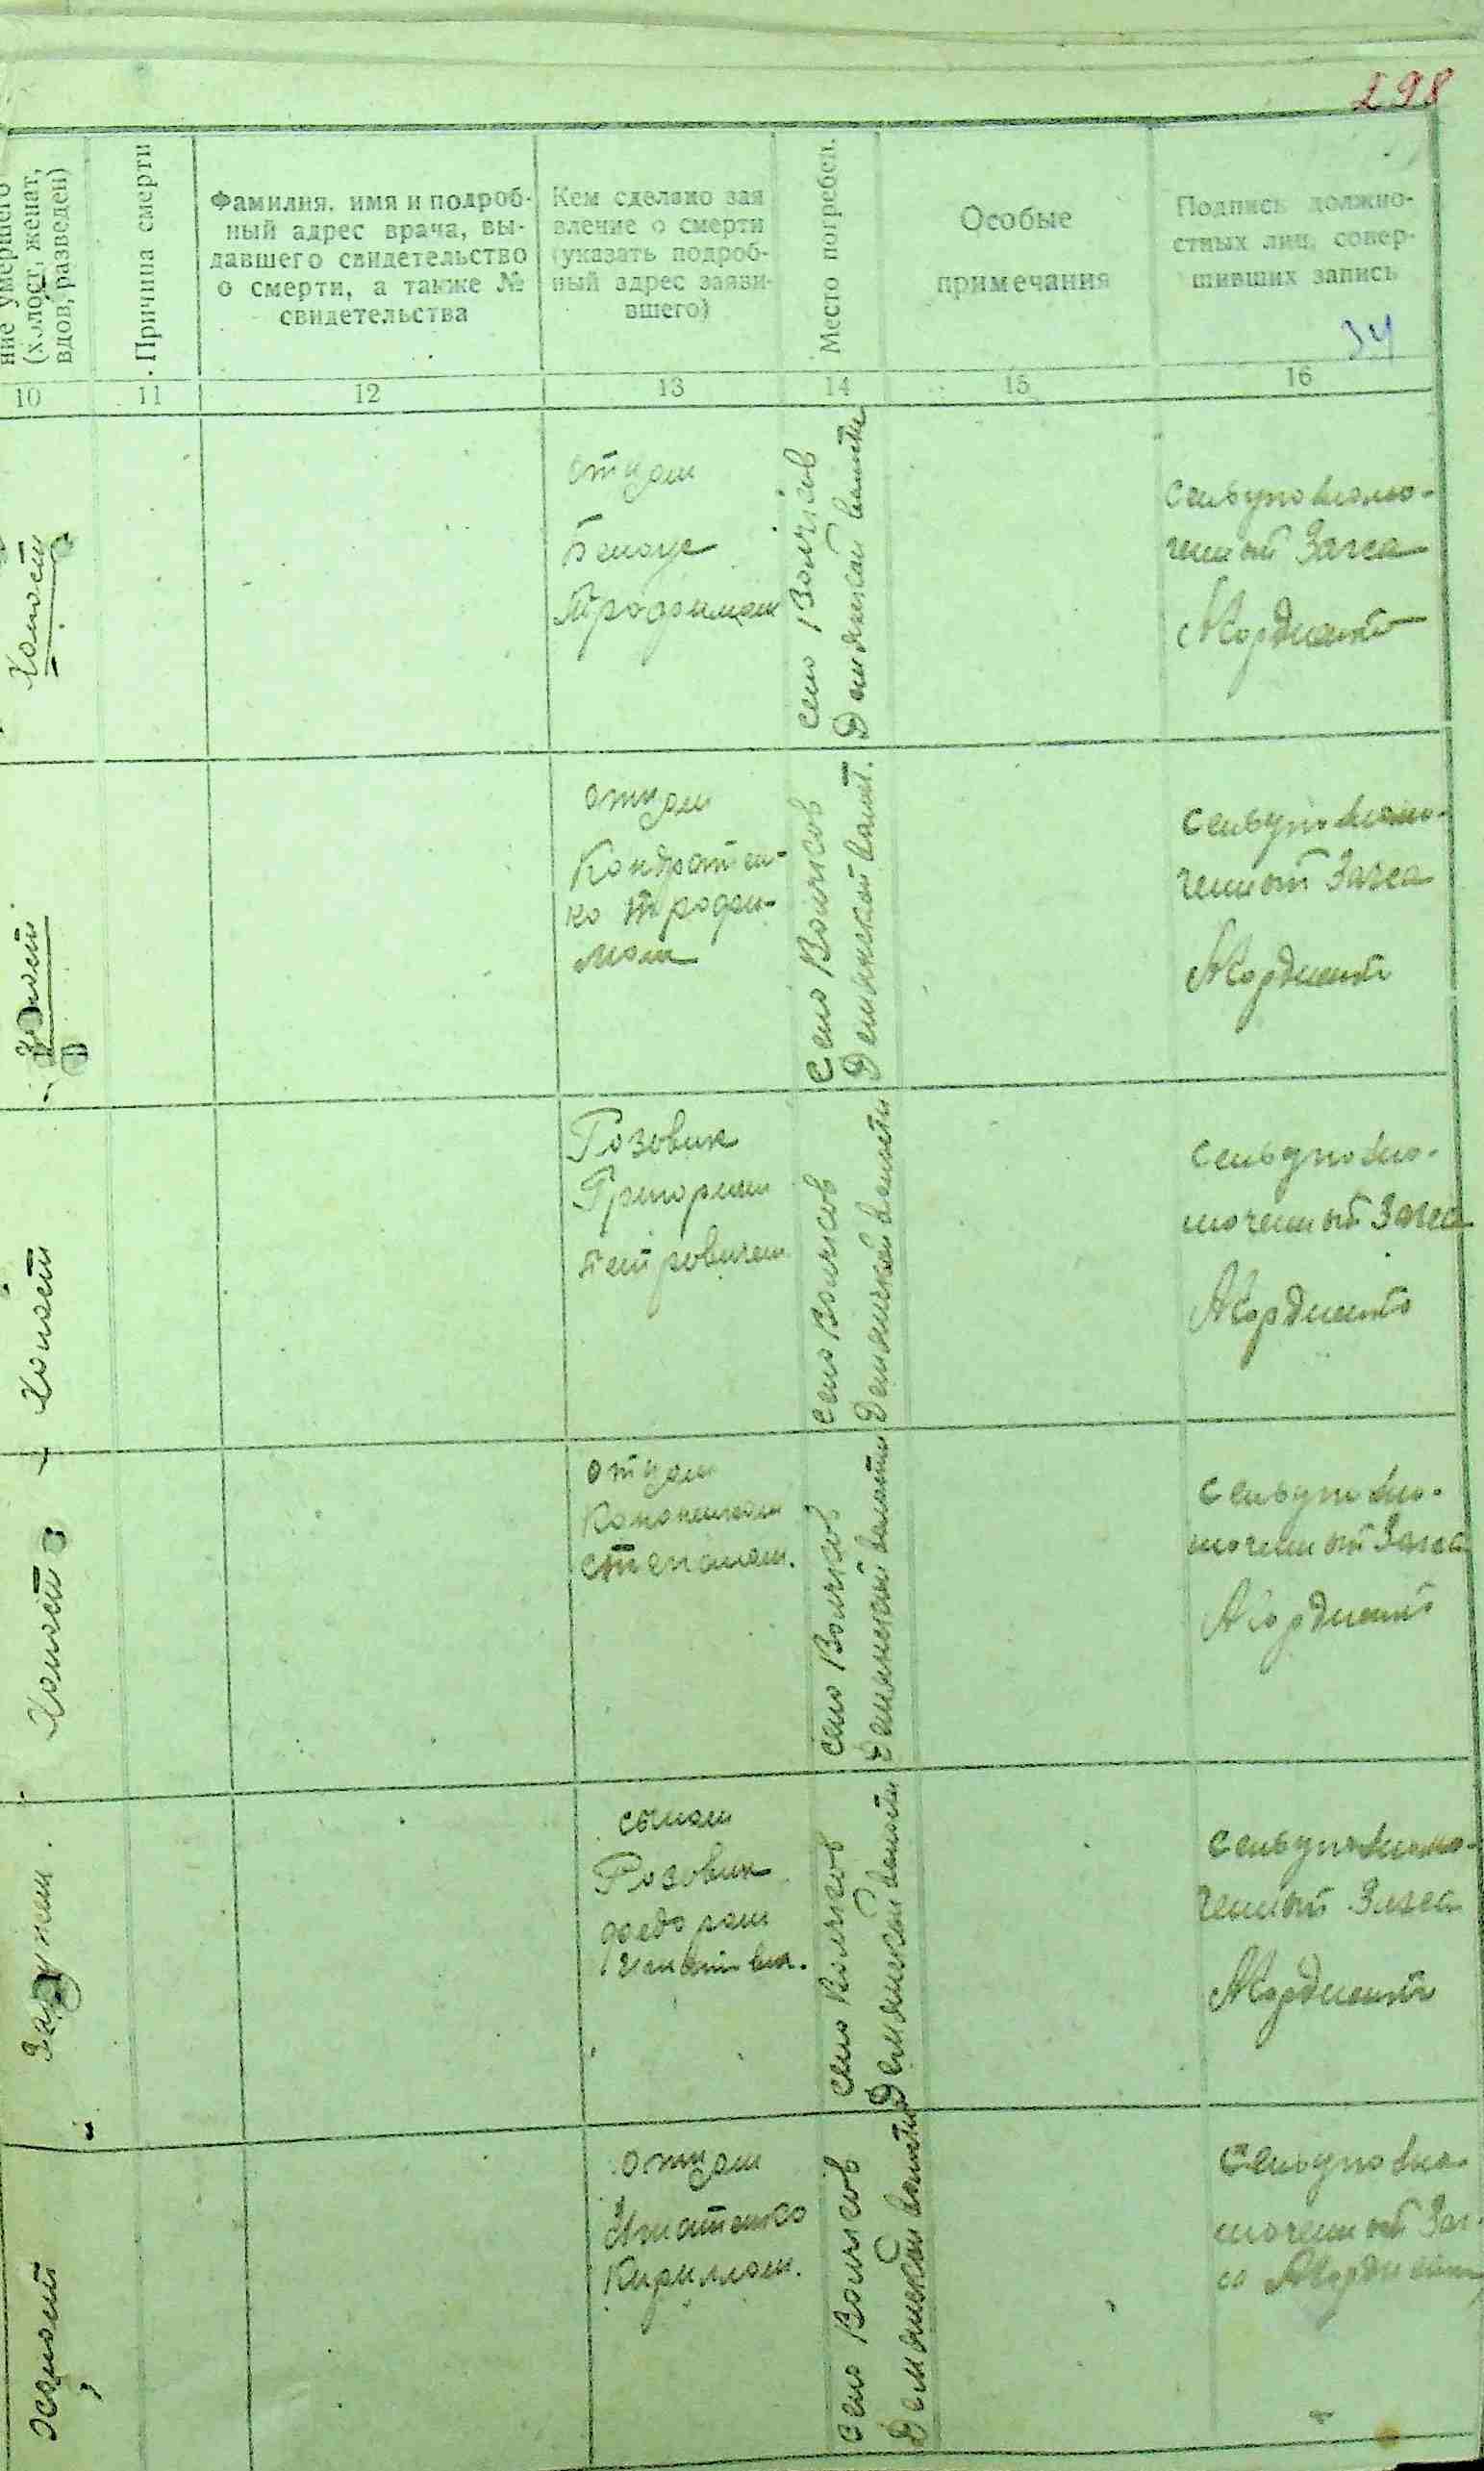 298
ние умершего
(холост, женат,
вдов, разведен)
Причина смерти
Фамилия, имя и подроб-
ный адрес врача, вы-
давшего свидетельство
о смерти, а также №
свидетельства
Кем сделано зая
вление о смерти
(указать подроб-
ный адрес заяви-
вшего)
Место погребен.
Особые
примечания
Подпись должно-
стных лиц, совер-
шивших запись
34
10
11
12
13
14
15
16
Холост
отцом
Белоус
Трофимом
село Волчков
Демянской волости
сельуполномо-
ченный Загса
холост
отцом
Кондратен-
ко Трофи-
мом
село Волчков
Демянской волост.
сельуполномо-
ченный Загса
Холост
Розовик
Григорием
Петровичем
село Волчков
Демянской волости
сельуполно-
моченный Загса
Холост
отцом
Степаном.
село Волчков
Демянской волости
сельуполно-
моченный Загса
Замужем
сыном
Розовик
Федором
село Волчков
Демянской волости
сельуполномо-
ченный Загса
холост
отцом
Игнатенко
Кириллом.
село Волчков
Демянской волости
сельуполно-
моченный Заг-
са